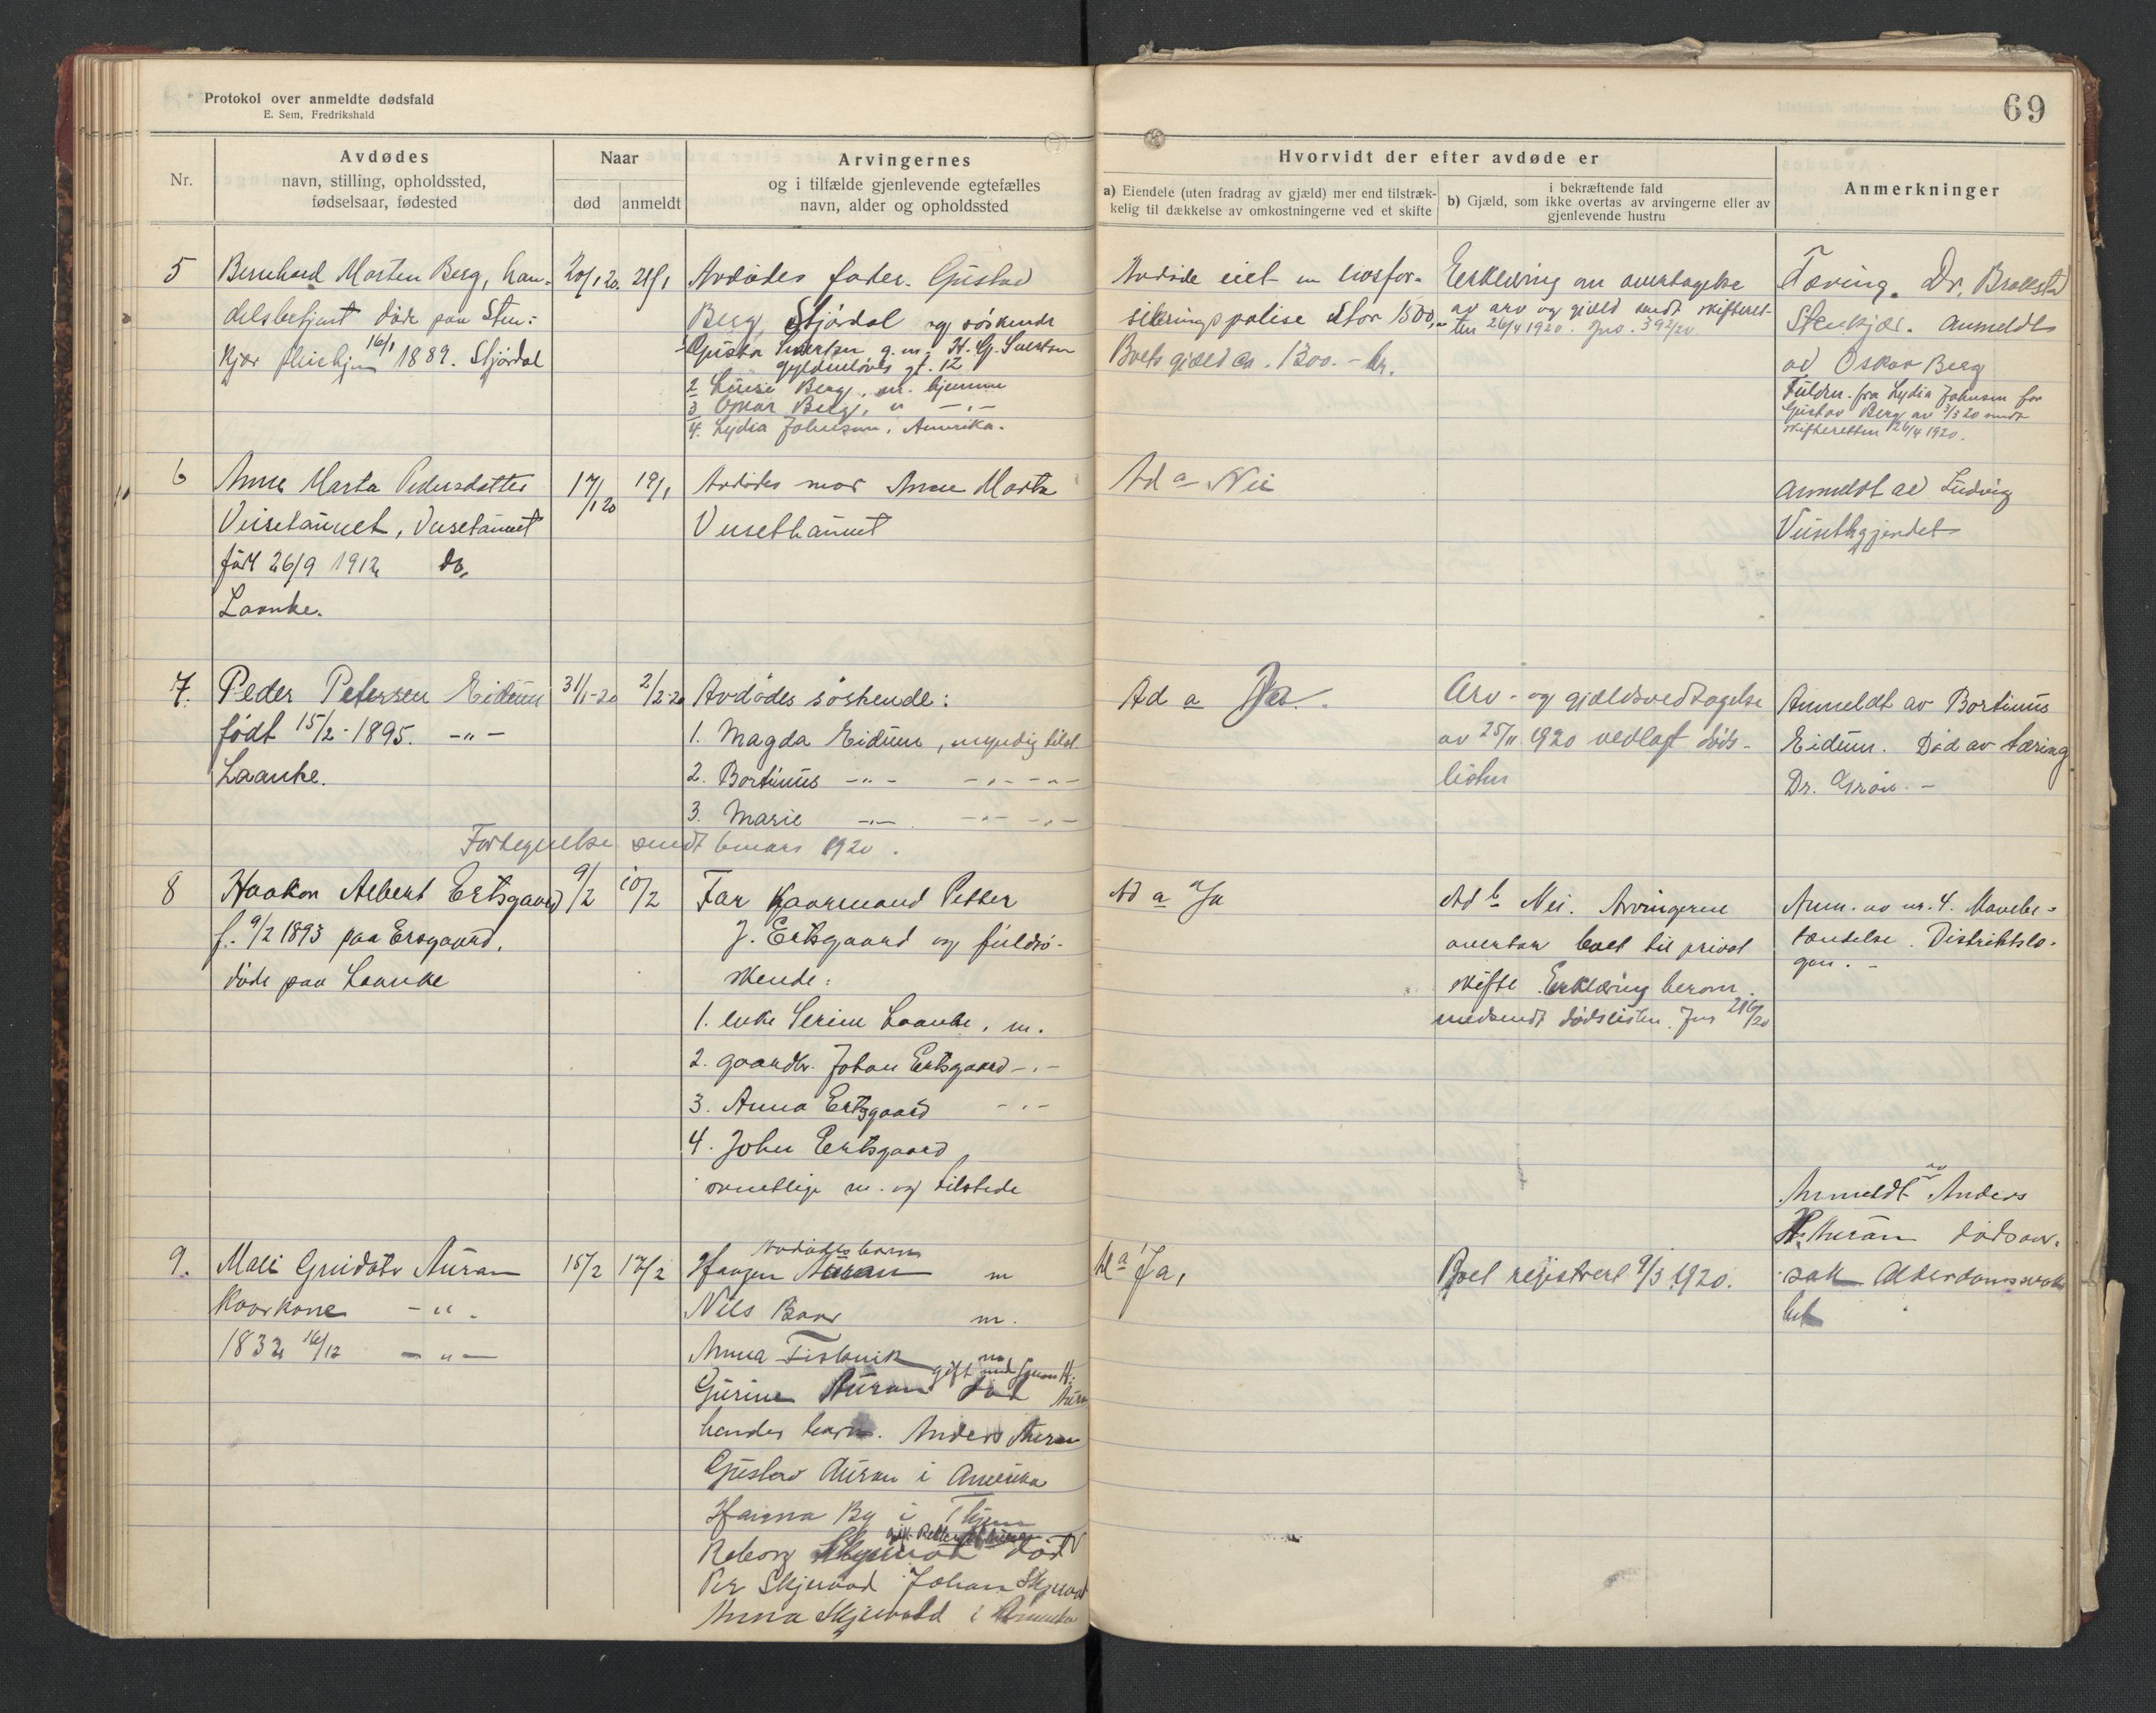 Protokol over anmeldte dødsfald
E. Sem, Fredrikshald
69
Nr.
Avdødes
navn, stilling, opholdssted,
fødselsaar, fødested
Naar
død
anmeldt
Arvingernes
og i tilfælde gjenlevende egtefælles
navn, alder og opholdssted
Hvorvidt der efter avdøde er
a) Eiendele (uten fradrag av gjæld) mer end tilstræk-
kelig til dækkelse av omkostningerne ved et skifte
i bekræftende fald
b) Gjæld, som ikke overtas av arvingerne eller av
gjenlevende hustru
Anmerkninger
5
Bernhard Morten Berg, han-
delsbetjent døde paa Sten-
kjær 16/1 1889. Stjørdal
20/1 20. 21/1
Avdødes fader. Gustav
Berg, Stjørdal og søskende
H. G.
gt. 12
2 Louise Berg, m. hjemme
3 Oskar Berg, " -"-
4. Lydia Johnsen, Amerika.
Avdøde eiet en livsfor-
sikringspolise stor 1500,-
Boets gjæld ca. 1300.- kr.
Erklæring om overtagelse
av arv og gjæld sendt skifteret-
ten 26/4 1920. Jno. 392/20
Tæring. Dr.
Stenkjær. Anmeldt
av Oskar Berg
Fuldm. fra Lydia Johnsen for
Gustav Berg av 3/3 20 sendt
skifteretten 26/4 1920.
6
Anne Marta Pedersdatter
født 26/9 1912 do,
Laanke.
17/1 20
19/1
Avdødes mor Anne Marta
Ad a Nei
Anmeldt av Ludvig
7.
Peder Petersen Eidum
født 15/2-1895. -"-
Laanke.
31/1-20
2/2-20
Avdødes søskende:
1. Magda Eidum, myndig tilst.
2. Bortinus -"- -"- -"-
3. Marie -"- -"- -"-
Fortegnelse sendt 6 mars 1920.
Ad a Ja.
Arv- og gjældsvedtagelse
av 25/11 1920 vedlagt døds-
listen
Anmeldt av Bortinus
Eidum. Død av tæring
Dr. Grøn. -
8
Haakon Albert Ertsgaard
f. 9/2 1893 paa Ersgaard,
døde paa Laanke
9/2
10/2
Far kaarmand Petter
J. Ertsgaard og fuldsø-
skende:
1. enke Serine Laanke, m.
2. gaardbr. Johan Ertsgaard -"-
3. Anna Ertsgaard -"-
4. John Ertsgaard
samtlige m. og tilstede
Ad a Ja
Ad b Nei. Arvingerne
overtar boet til privat
skifte. Erklæring herom
medsendt dødslisten. Jnr 216/20
Anm. av nr. 4. Mavebe-
tændelse. Distriktslæ-
gen. -
9.
Mali Auran
Kaarkone -"-
1832 16/12 -"-
15/2
17/2
Avdødes barn
Auran m
Nils m.
Anna m
Gurine Auran død
gift med H. Auran
hendes barn. Anders Auran
Gustav Auran i Amerika
Hanna By i Thjem
død
Per Skjervold Johan Skjervold
Anna Skjervold i Amerika
Ad a Ja,
Boet registrert 9/3 1920.
Anmeldt av Anders
H. Auran dødsaar-
sak Alderdomssvak-
het